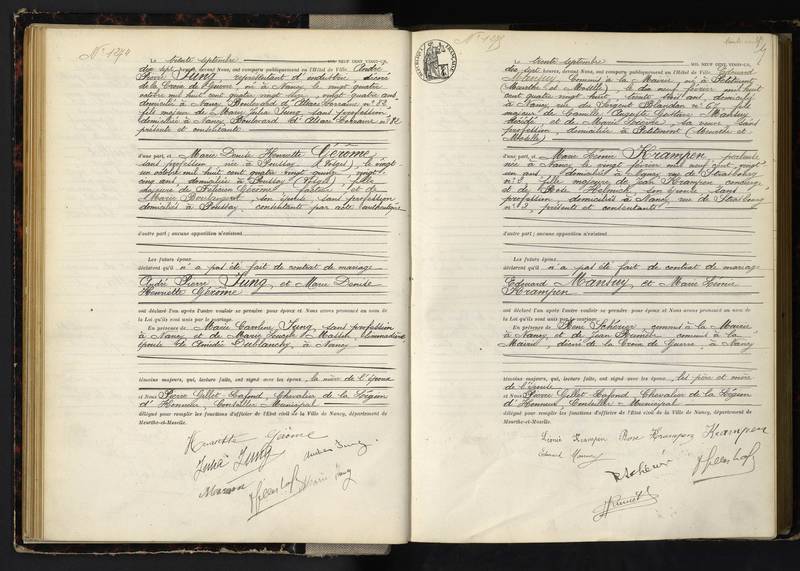 N° 1274
Le trente septembre MIL NEUF CENT VINGT-UN,
dix sept heures, devant Nous, ont comparu publiquement en l'Hôtel de Ville, André
Pierre Jung, représentant d'industrie, décoré
de la Croix de Guerre, né à Nancy, le vingt quatre
octobre mil huit cent quatre vingt seize, vingt quatre ans,
domicilié à Nancy Boulevard d'Alsace Lorraine n° 82,
fils majeur de Marie Julia Jung, sans profession
domiciliée à Nancy, Boulevard d'Alsace Lorraine n° 82
présente et consentante
d'une part, et Marie Denise Henriette Gérôme,
sans profession, née à Poussay (Vosges), le vingt
un octobre mil huit cent quatre vingt quinze, vingt
cinq ans, domiciliée à Poussay (Vosges), fille
majeure de Gérôme, facteur, et de
Marie Boulangeot, son épouse, sans profession
domiciliés à Poussay, consentants par acte authentique
d'autre part; aucune opposition n'existant
Les futurs époux
déclarent qu'il n'a pas été fait de contrat de mariage
André Pierre Jung, et Marie Denise
Henriette Gérôme
ont déclaré l'un après l'autre vouloir se prendre pour époux et Nous avons prononcé au nom de
la Loi qu'ils sont unis par le mariage.
En présence de Marie Caroline Jung, sans profession
à Nancy, et de Marie
épouse de Amédée Dublanchy, à Nancy
témoins majeurs, qui, lecture faite, ont signé avec les époux, la mère de l'époux
et Nous Pierre Gillet Lafond, Chevalier de la Légion
d'Honneur, Conseiller Municipal
délégué pour remplir les fonctions d'officier de l'Etat civil de la Ville de Nancy, département de
Meurthe-et-Moselle.
Henriette Gérôme
Julia Jung
André Jung
Marie Jung
N° 1275
Le trente septembre MIL NEUF CENT VINGT-UN,
dix sept heures, devant Nous, ont comparu publiquement en l'Hôtel de Ville, Edouard
Mansuy, Commis à la Mairie, né à Petitmont
(Meurthe et Moselle), le dix neuf février mil huit
cent quatre vingt huit, trente trois ans, domicilié
à Nancy, rue du Sergent Blandan n° 67, fils
majeur de Camille Auguste Gustave Mansuy
décédé, et de Marie, sa veuve, sans
profession, domiciliée à Petitmont (Meurthe et
Moselle)
d'une part, et Marie Léonie Krampen,
née à Nancy, le vingt février mil neuf cent, vingt
un ans, domiciliée à Nancy rue de Strasbourg
fille majeure de Jean Krampen, concierge,
et de Rose Helmich, son épouse, sans
profession, domiciliés à Nancy, rue de Strasbourg
présents et consentants
d'autre part; aucune opposition n'existant
Les futurs époux
déclarent qu'il n'a pas été fait de contrat de mariage
Edouard Mansuy, et Marie Léonie
Krampen
ont déclaré l'un après l'autre vouloir se prendre pour époux et Nous avons prononcé au nom de
la Loi qu'ils sont unis par le mariage.
En présence de René Schérier, commis à la Mairie
à Nancy, et de Jean, commis à la
Mairie, décoré de la Croix de Guerre, à Nancy
témoins majeurs, qui, lecture faite, ont signé avec les époux, les père et mère
de l'épouse
et Nous Pierre Gillet Lafond, Chevalier de la Légion
d'Honneur, Conseiller Municipal
délégué pour remplir les fonctions d'officier de l'Etat civil de la Ville de Nancy, département de
Meurthe-et-Moselle.
Léonie Krampen Rose Krampen Krampen
Edouard Mansuy